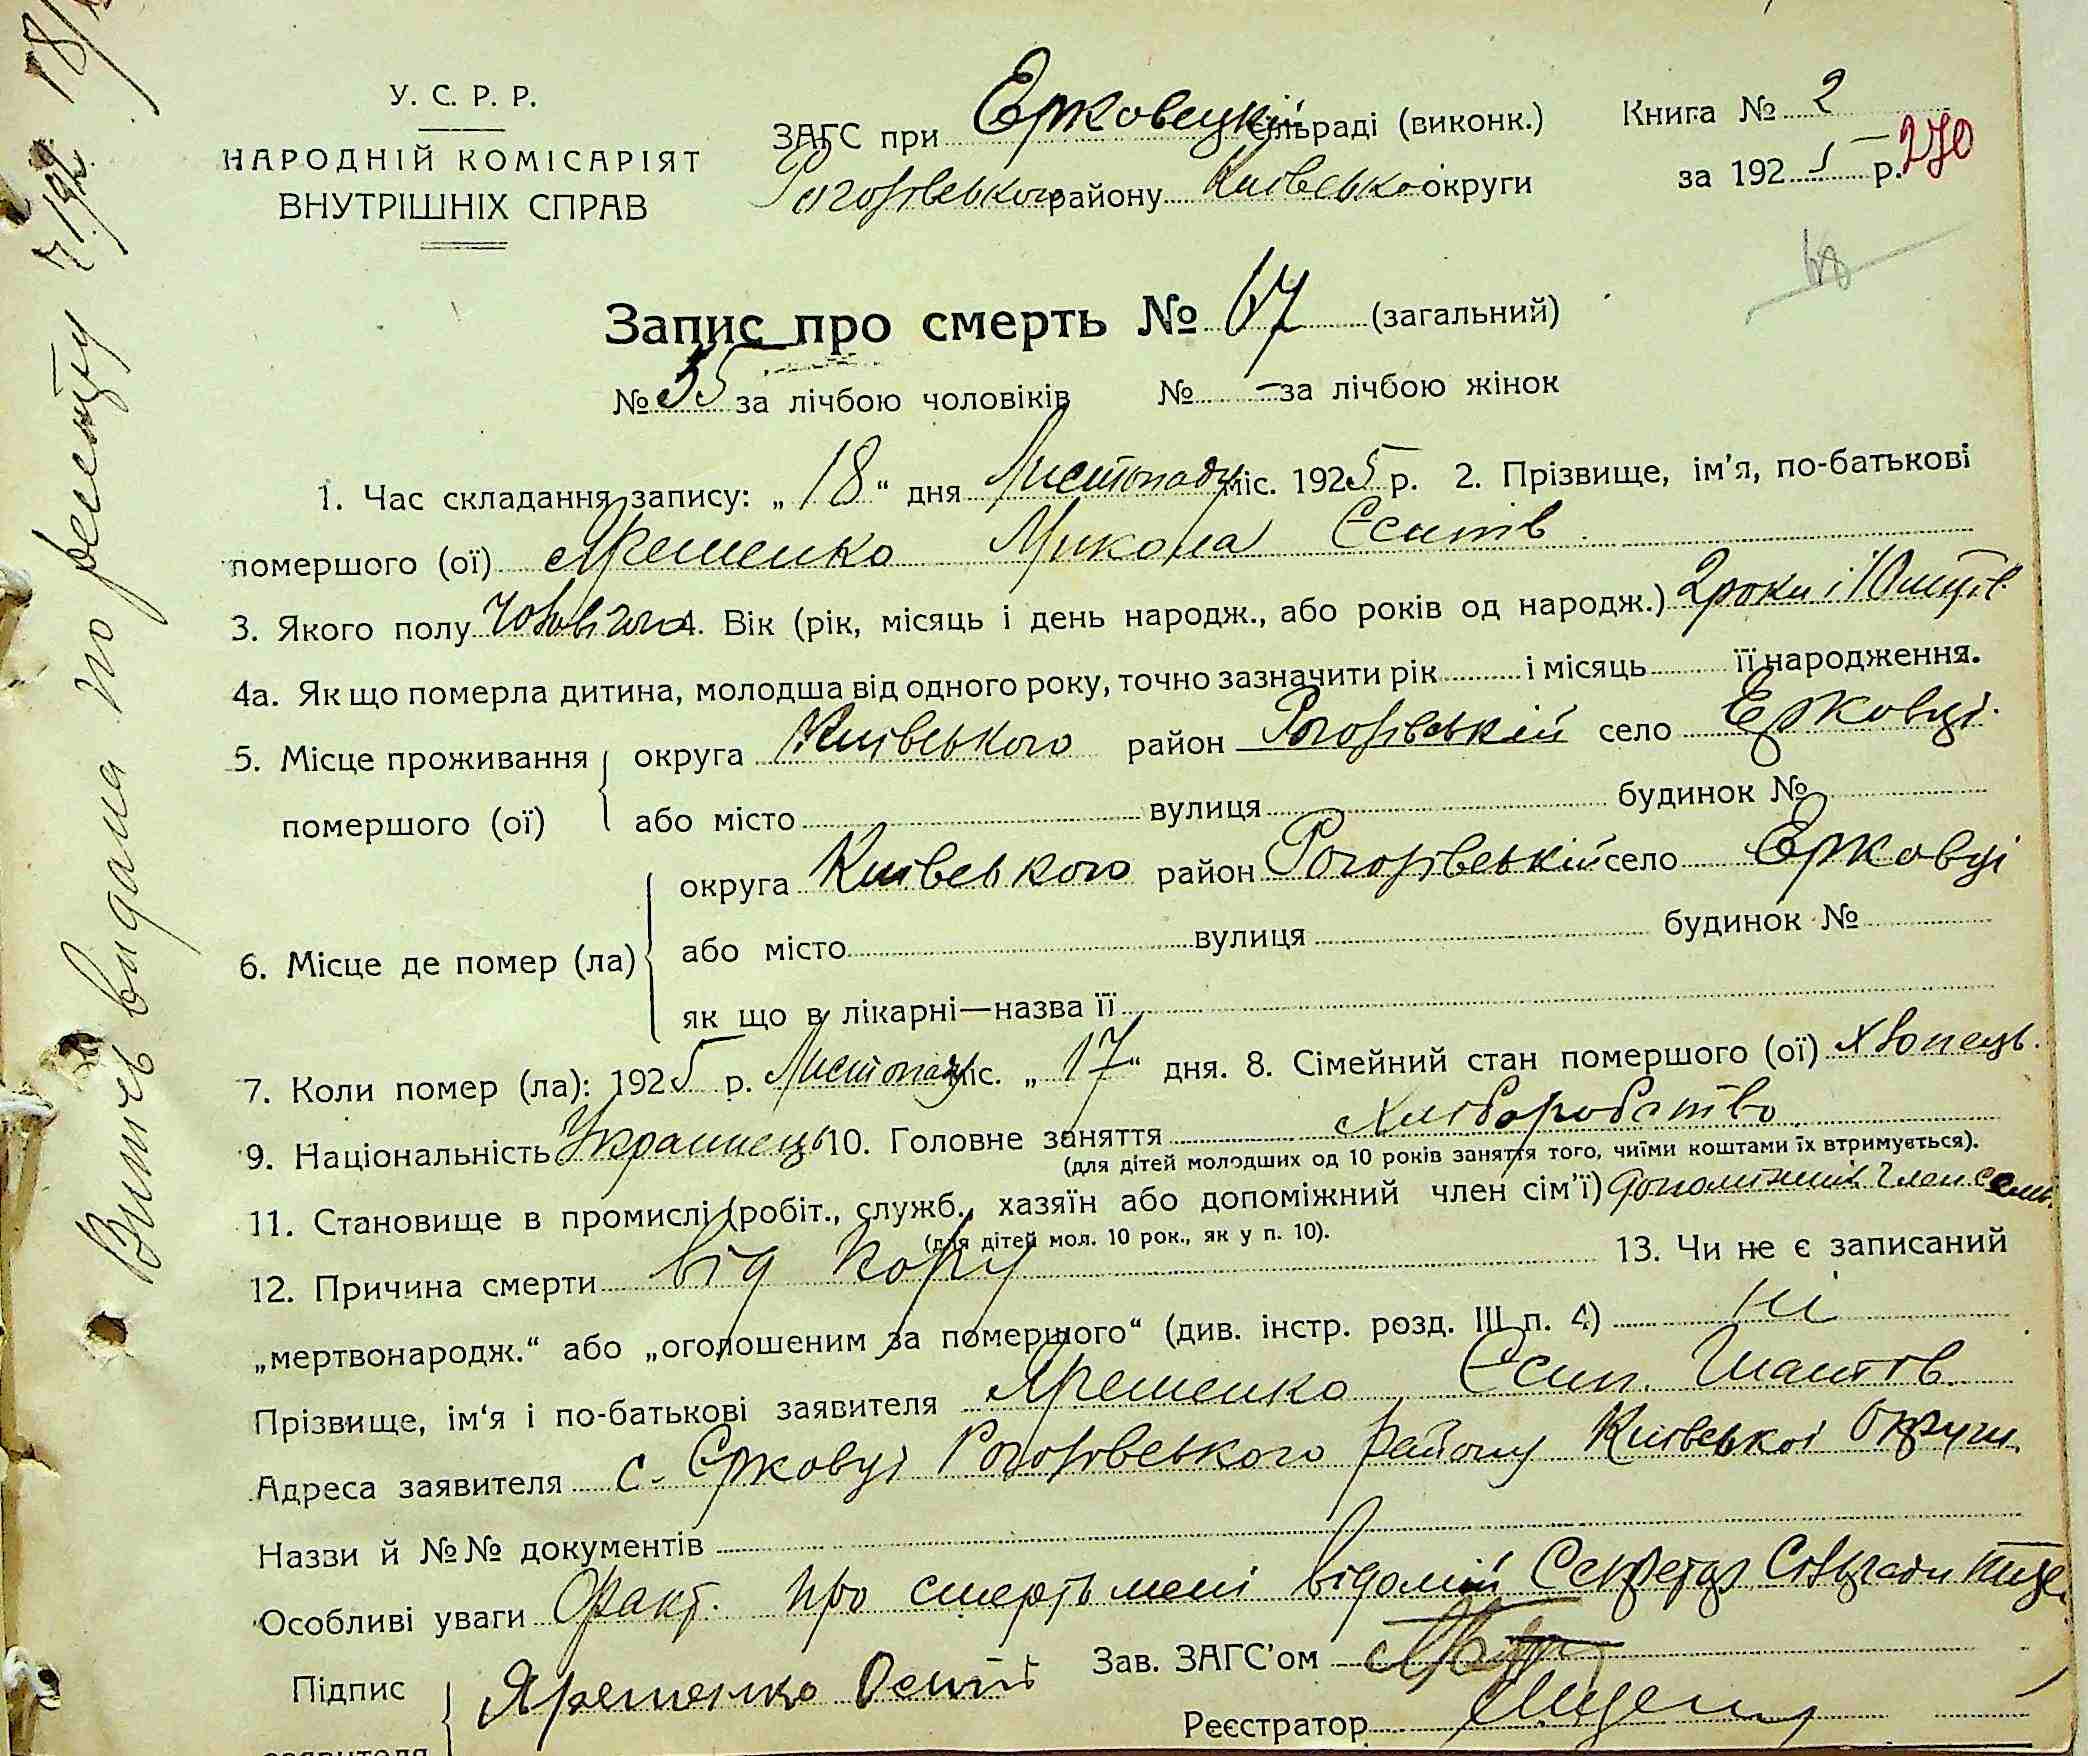 У. С. Р. Р.
НАРОДНІЙ КОМІСАРІЯТ
ВНУТРІШНІХ СПРАВ
ЗАГС при Ерковецкій сільраді (виконк.)
Рогозівського району Київсько округи
Книга № 2
за 1925 р. 270
68
Запис про смерть № 67 (загальний)
№ 35 за лічбою чоловіків № - за лічбою жінок
1. Час складання запису: „18“ дня Листопаду міс. 1925 р. 2. Прізвище, ім’я, по-батькові
помершого (ої) Ярешенко Микола Єсипів
3. Якого полу чоловічого 4. Вік (рік, місяць і день народж., або років од народж.) 2 роки і 10 місців
4а. Як що померла дитина, молодша від одного року, точно зазначити рік і місяць її народження.
5. Місце проживання помершого (ої) округа Київського район Рогозівській село Ерковці
або місто вулиця будинок №
6. Місце де помер (ла) округа Київського район Рогозівській село Ерковці
або місто вулиця будинок №
як що в лікарні—назва її
7. Коли помер (ла): 1925 р. Листопаду міс. „17“ дня. 8. Сімейний стан помершого (ої) хлопець.
9. Національність Украинець 10. Головне заняття хліборобство
(для дітей молодших од 10 років заняття того, чиїми коштами їх втримується).
11. Становище в промислі (робіт., служб., хазяїн або допоміжний член сім’ї) допоміжний член
(для дітей мол. 10 рок., як у п. 10).
12. Причина смерти від кору 13. Чи не є записаний
„мертвонародж.“ або „оголошеним за помершого“ (див. інстр. розд. III п. 4) ні
Прізвище, ім‘я і по-батькові заявителя Ярешенко Єсип
Адреса заявителя с. Єрковці Рогозівського району Київської Округи
Назви й №№ документів
Особливі уваги Факт. про смерть мені відомий Секретар Сільради
Підпис заявителя Ярешенко Осип
Зав. ЗАГС’ом
Реєстратор
Витяг видана по